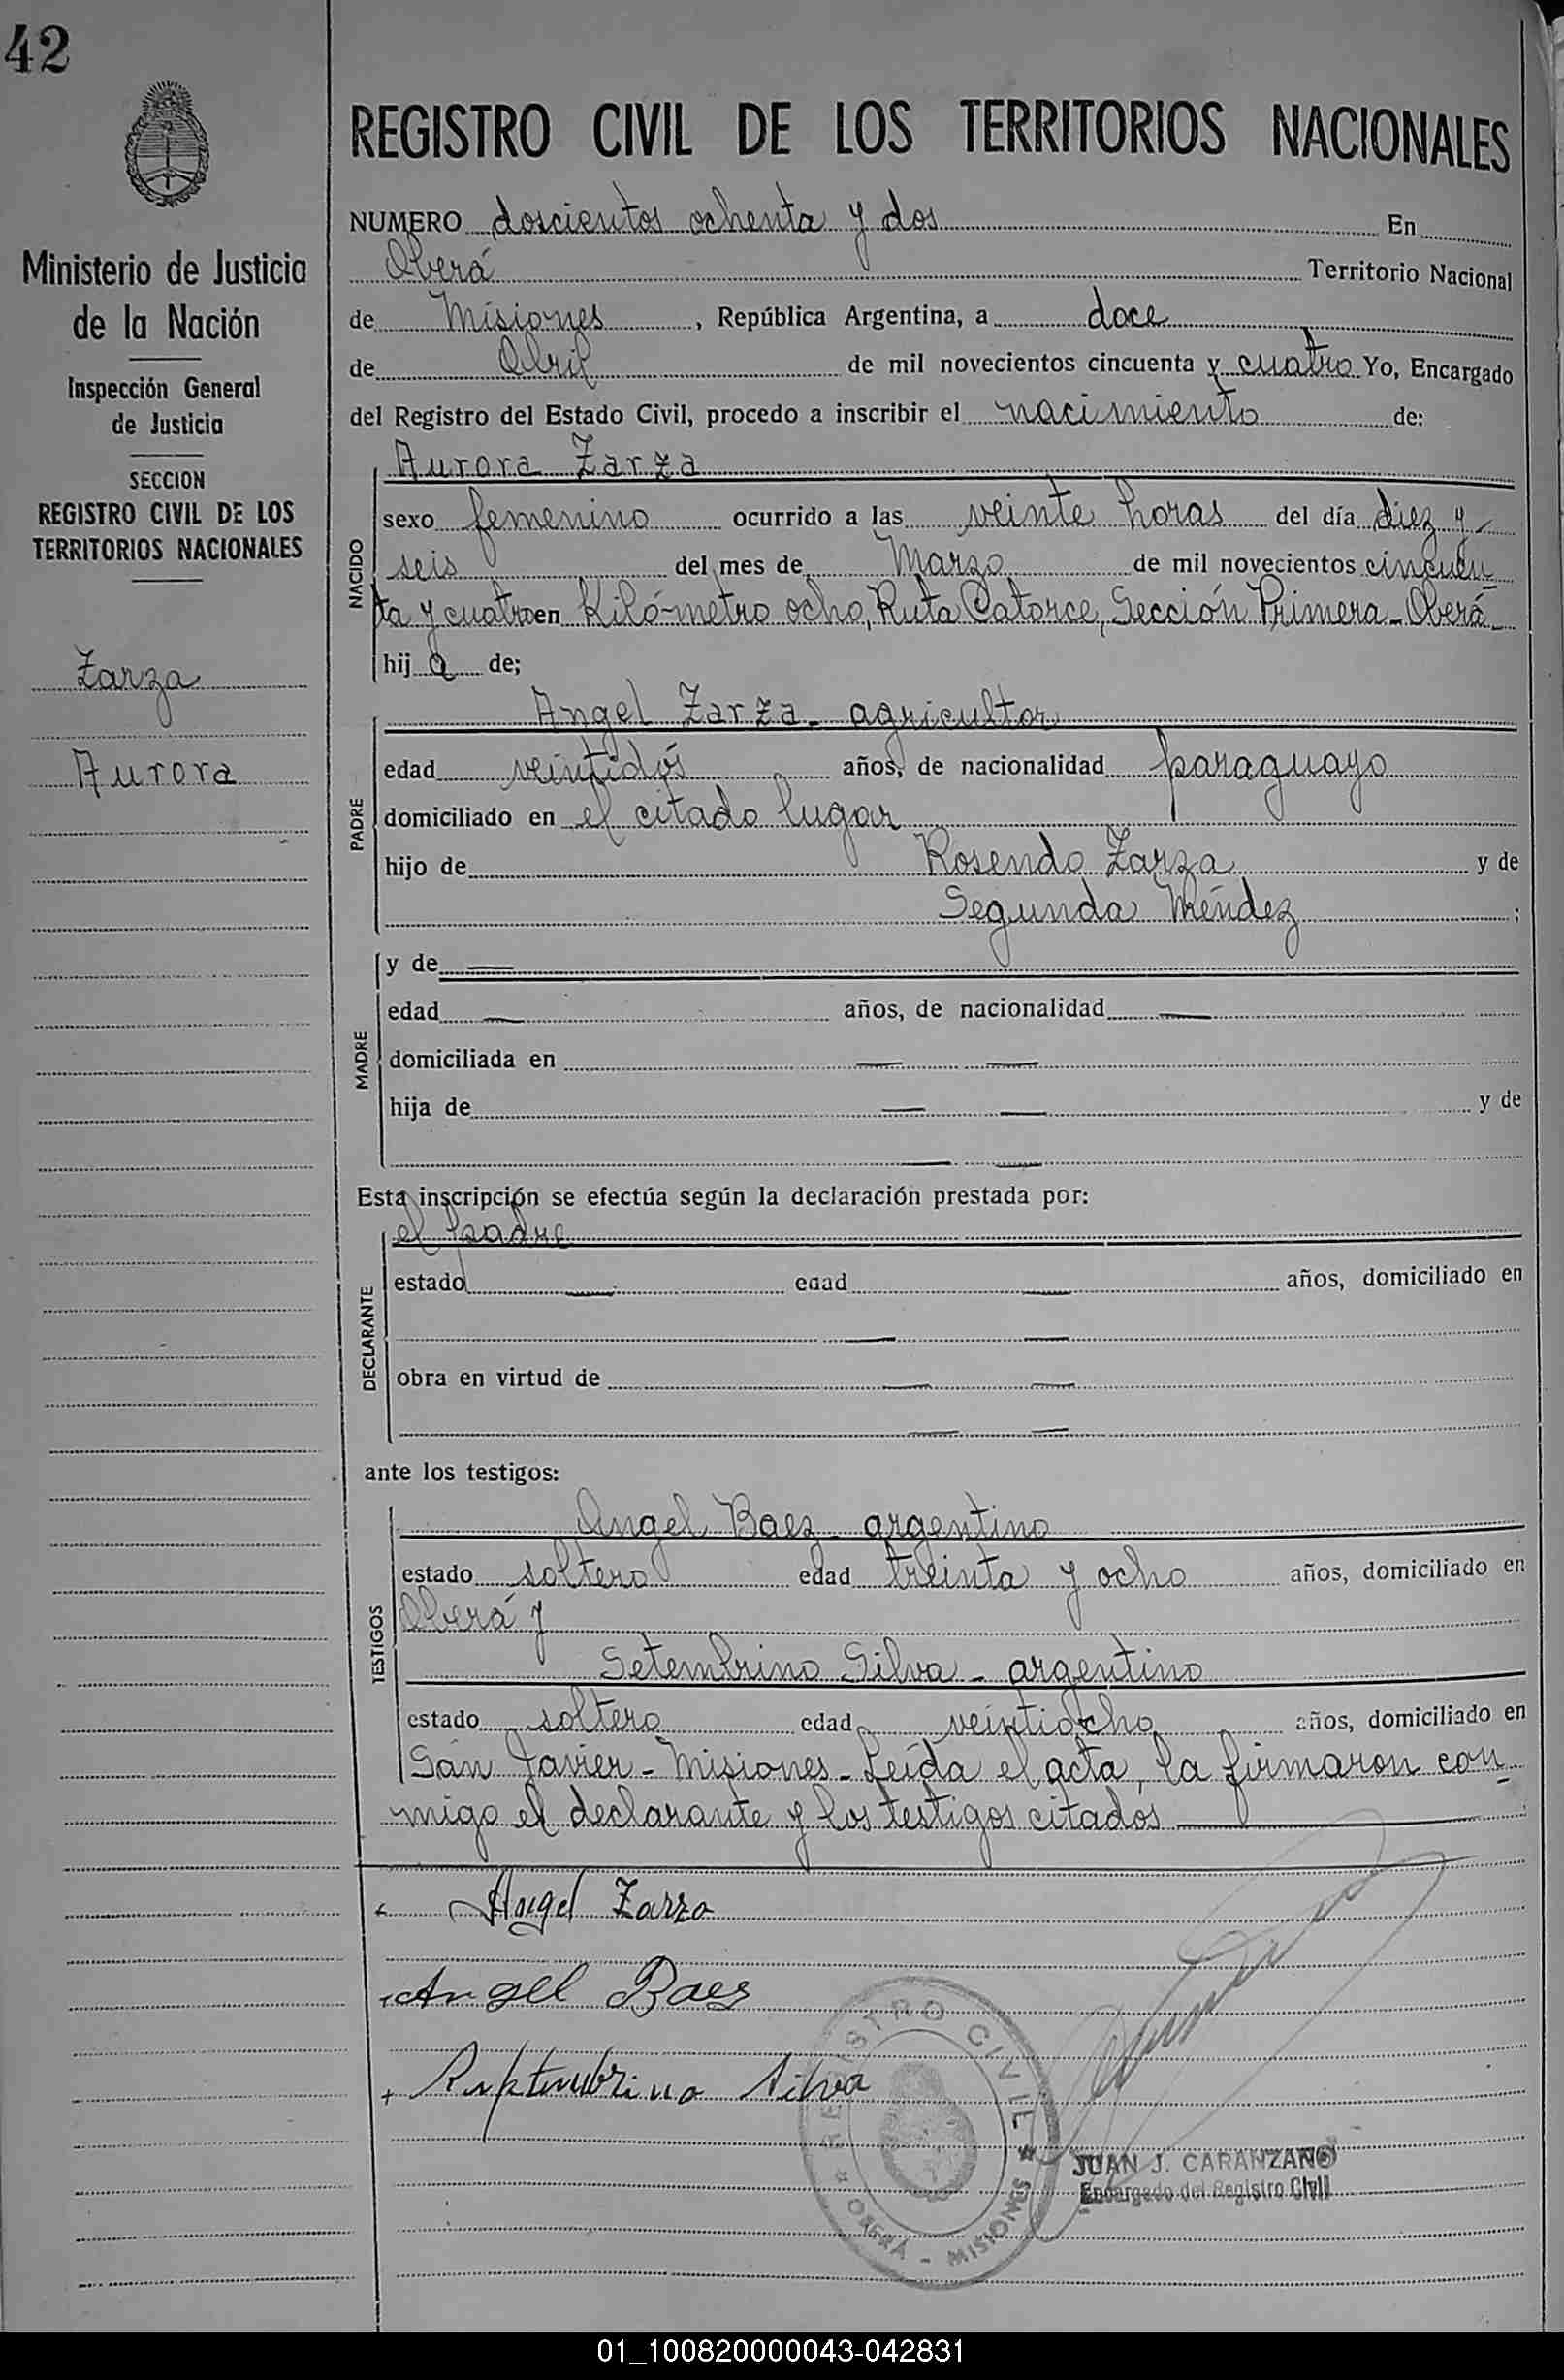 42
Ministerio de Justicia
de la Nación
Inspección General
de Justicia
SECCION
REGISTRO CIVIL DE LOS
TERRITORIOS NACIONALES
Zarza
Aurora
REGISTRO CIVIL DE LOS TERRITORIOS NACIONALES
NUMERO doscientos ochenta y dos En
Oberá Territorio Nacional
de Misiones, República Argentina, a doce
de Abril de mil novecientos cincuenta y cuatro Yo, Encargado
del Registro del Estado Civil, procedo a inscribir el nacimiento de:
NACIDO
Aurora Zarza
sexo femenino ocurrido a las veinte horas del día diez y
seis del mes de Marzo de mil novecientos cincuen_
ta y cuatro en Kiló-metro ocho, Ruta Catorce, Sección Primera - Oberá -
hija de;
PADRE
Angel Zarza - agricultor
edad veintidós años, de nacionalidad paraguayo
domiciliado en el citado lugar
hijo de Rosendo Zarza y de
Segunda Méndez ;
MADRE
y de —
edad — años, de nacionalidad —
domiciliada en — —
hija de — — y de
— —
Esta inscripción se efectúa según la declaración prestada por:
DECLARANTE
el padre
estado — edad — años, domiciliado en
— —
obra en virtud de — —
— —
ante los testigos:
TESTIGOS
Angel Baez - argentino
estado soltero edad treinta y ocho años, domiciliado en
Oberá y
Setembrino Silva - argentino
estado soltero edad veintiocho años, domiciliado en
San Javier - Misiones - Leída el acta, la firmaron con_
migo el declarante y los testigos citados —
Angel Zarza
Angel Baes
Silva
REGISTRO CIVIL
OBERÁ - MISIONES
JUAN J. CARANZANO
Encargado del Registro Civil
01_100820000043-042831